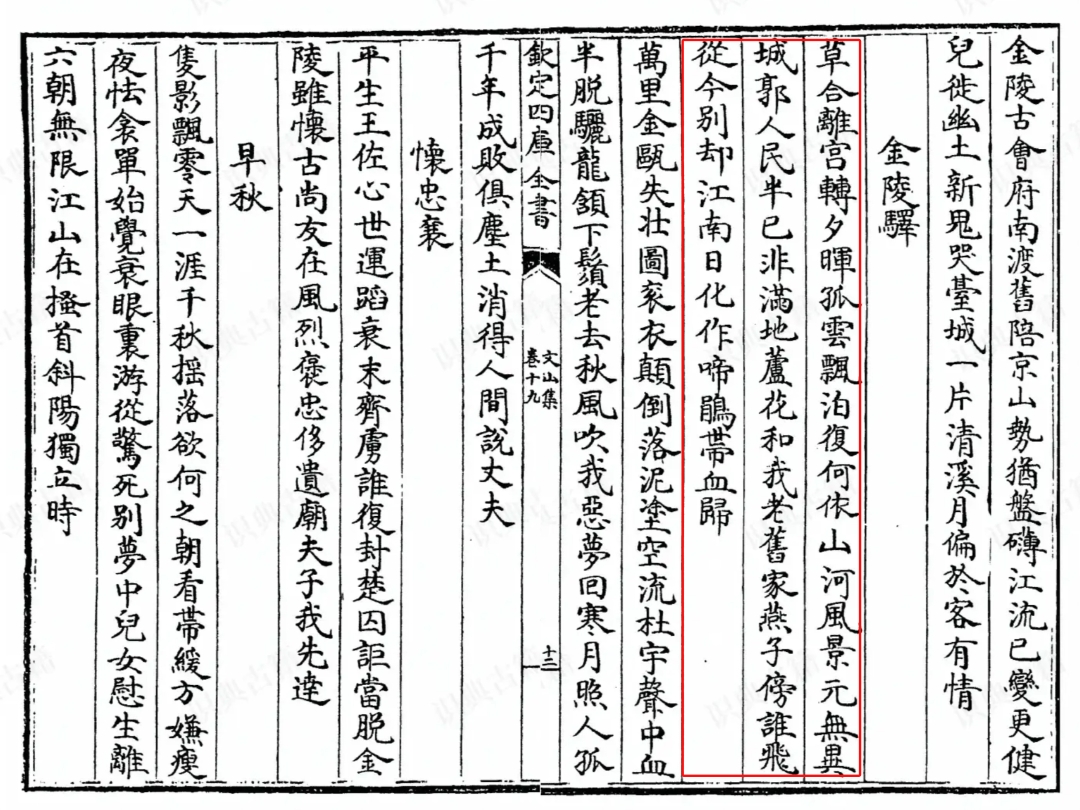 金陵古㑹府南渡舊陪京山勢猶盤礴江流已變更健
兒徙幽土新鬼哭臺城一片清溪月偏於客有情
金陵驛
草合離宫轉夕暉孤雲飄泊復何依山河風景元無異
城郭人民半已非滿地蘆花和我老舊家燕子傍誰飛
從今别却江南日化作啼鵑帯血歸
萬里金甌失壮圖衮衣顛倒落泥塗空流杜宇聲中血
半脱驪龍頷下鬚老去秋風吹我惡夢回寒月照人孤
欽定四庫全書
文山集
卷十九
十三
千年成敗俱塵土消得人間說丈夫
懷忠襄
平生王佐心世運蹈衰末齊虜誰復封楚囚詎當脱金
陵雖懷古尚友在風烈褒忠侈遺廟夫子我先達
早秋
隻影飄零天一涯千秋揺落欲何之朝看帯緩方嫌瘦
夜怯衾單始覺衰眼裏游從驚死别夢中兒女慰生離
六朝無限江山在搔首斜陽獨立時
識典古籍